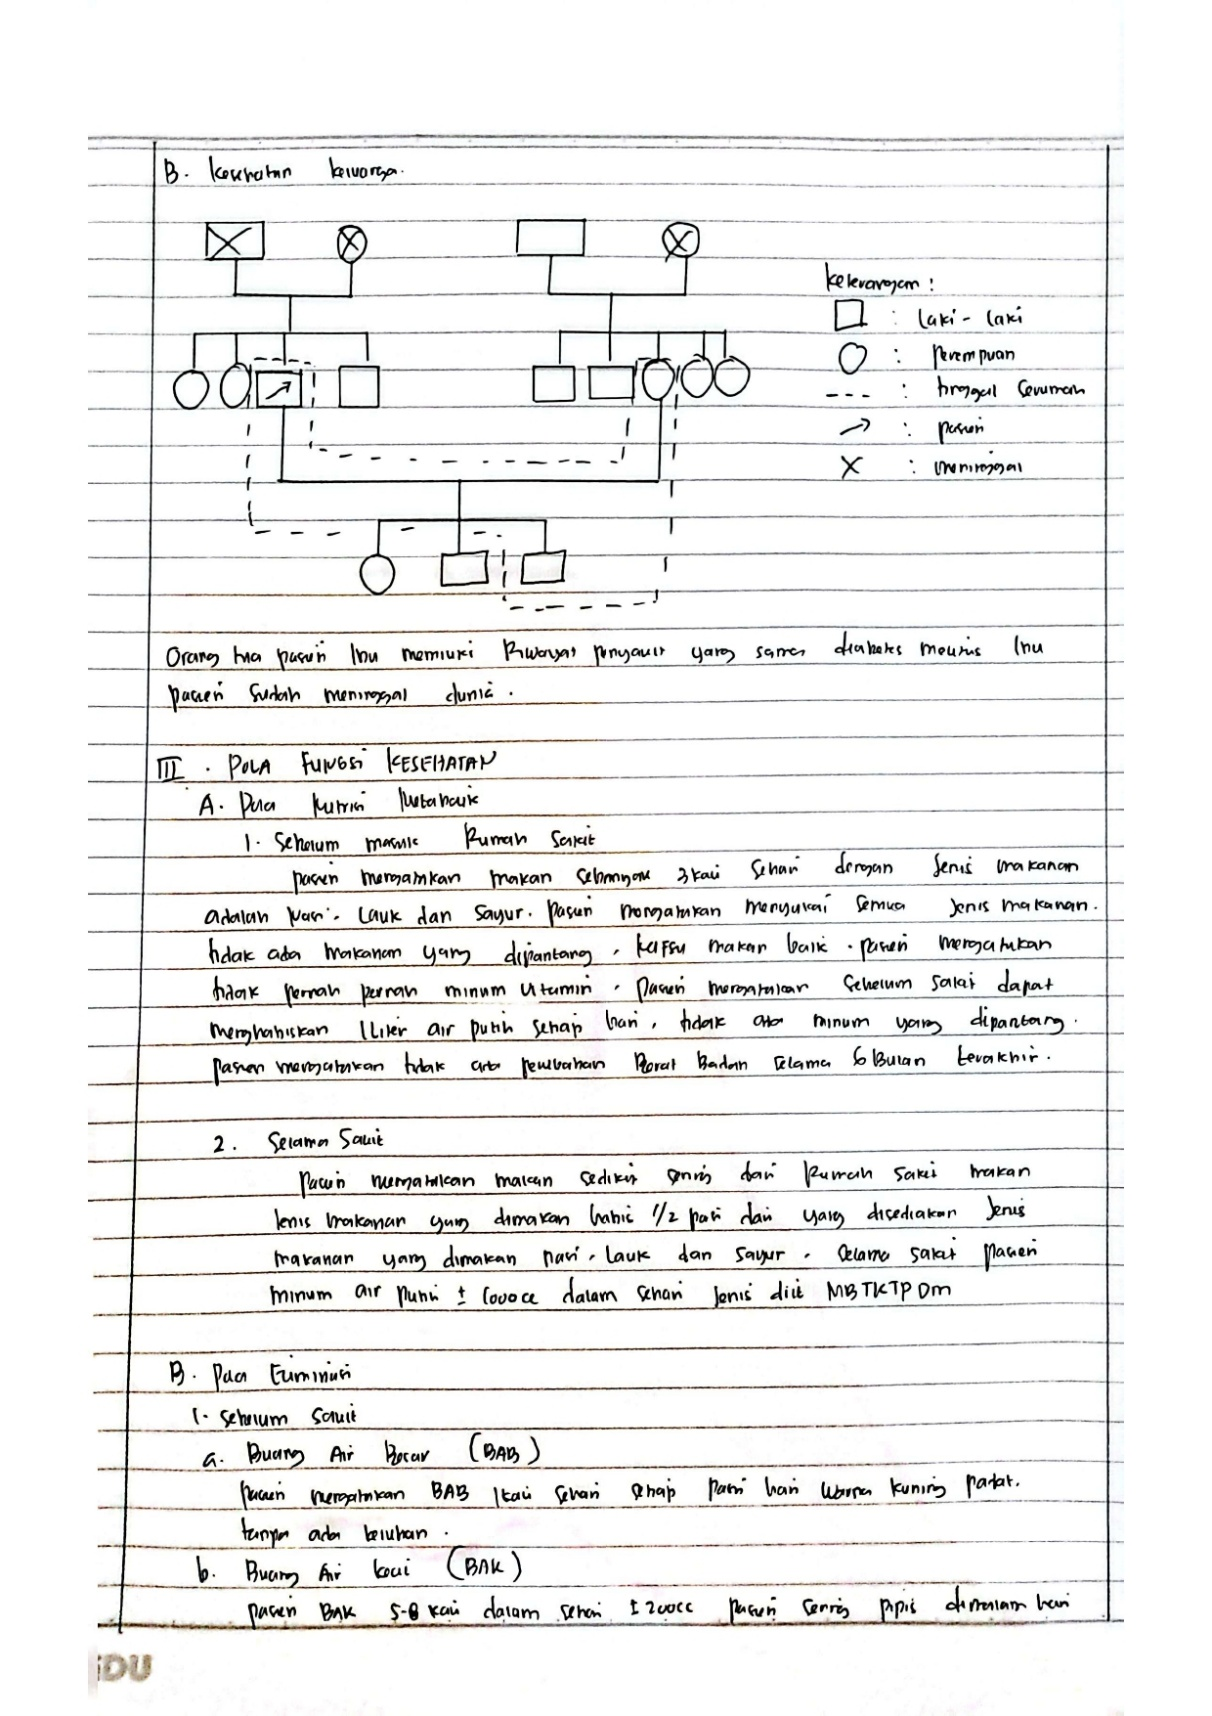 B. Kesehatan keluarga.
Keterangan :
: Laki - Laki
: perempuan
--- : tinggal serumah
→ : pasien
X : meninggal
Orang tua pasien Ibu memiliki Riwayat penyakit yang sama diabetes melitus Ibu
pasien sudah meninggal dunia.
III. POLA FUNGSI KESEHATAN
A. Pola Nutrisi Metabolik
1. Sebelum masuk Rumah Sakit
pasien mengatakan makan sebanyak 3 kali sehari dengan Jenis makanan
adalah Nasi, Lauk dan Sayur. pasien mengatakan menyukai semua Jenis makanan.
tidak ada makanan yang dipantang, Nafsu makan baik. pasien mengatakan
tidak pernah pernah minum Vitamin, pasien mengatakan sebelum sakit dapat
menghabiskan 1 Liter air putih setiap hari, tidak ada minum yang dipantang.
pasien mengatakan tidak ada perubahan Berat Badan selama 6 Bulan terakhir.
2. Selama Sakit
Pasien mengatakan makan sedikit sering dari Rumah sakit makan
Jenis makanan yang dimakan habis 1/2 porsi dari yang disediakan Jenis
makanan yang dimakan nasi, Lauk dan sayur. Selama sakit pasien
minum air putih ± dalam sehari Jenis diit MBTKTP Dm
B. Pola Eliminasi
1. Sebelum Sakit
a. Buang Air Besar (BAB)
pasien mengatakan BAB 1 kali sehari setiap pagi hari warna kuning padat.
tanpa ada keluhan.
b. Buang Air kecil (BAK)
pasien BAK 5-8 kali dalam sehari ± 200cc pasien sering pipis dimalam hari
iDU